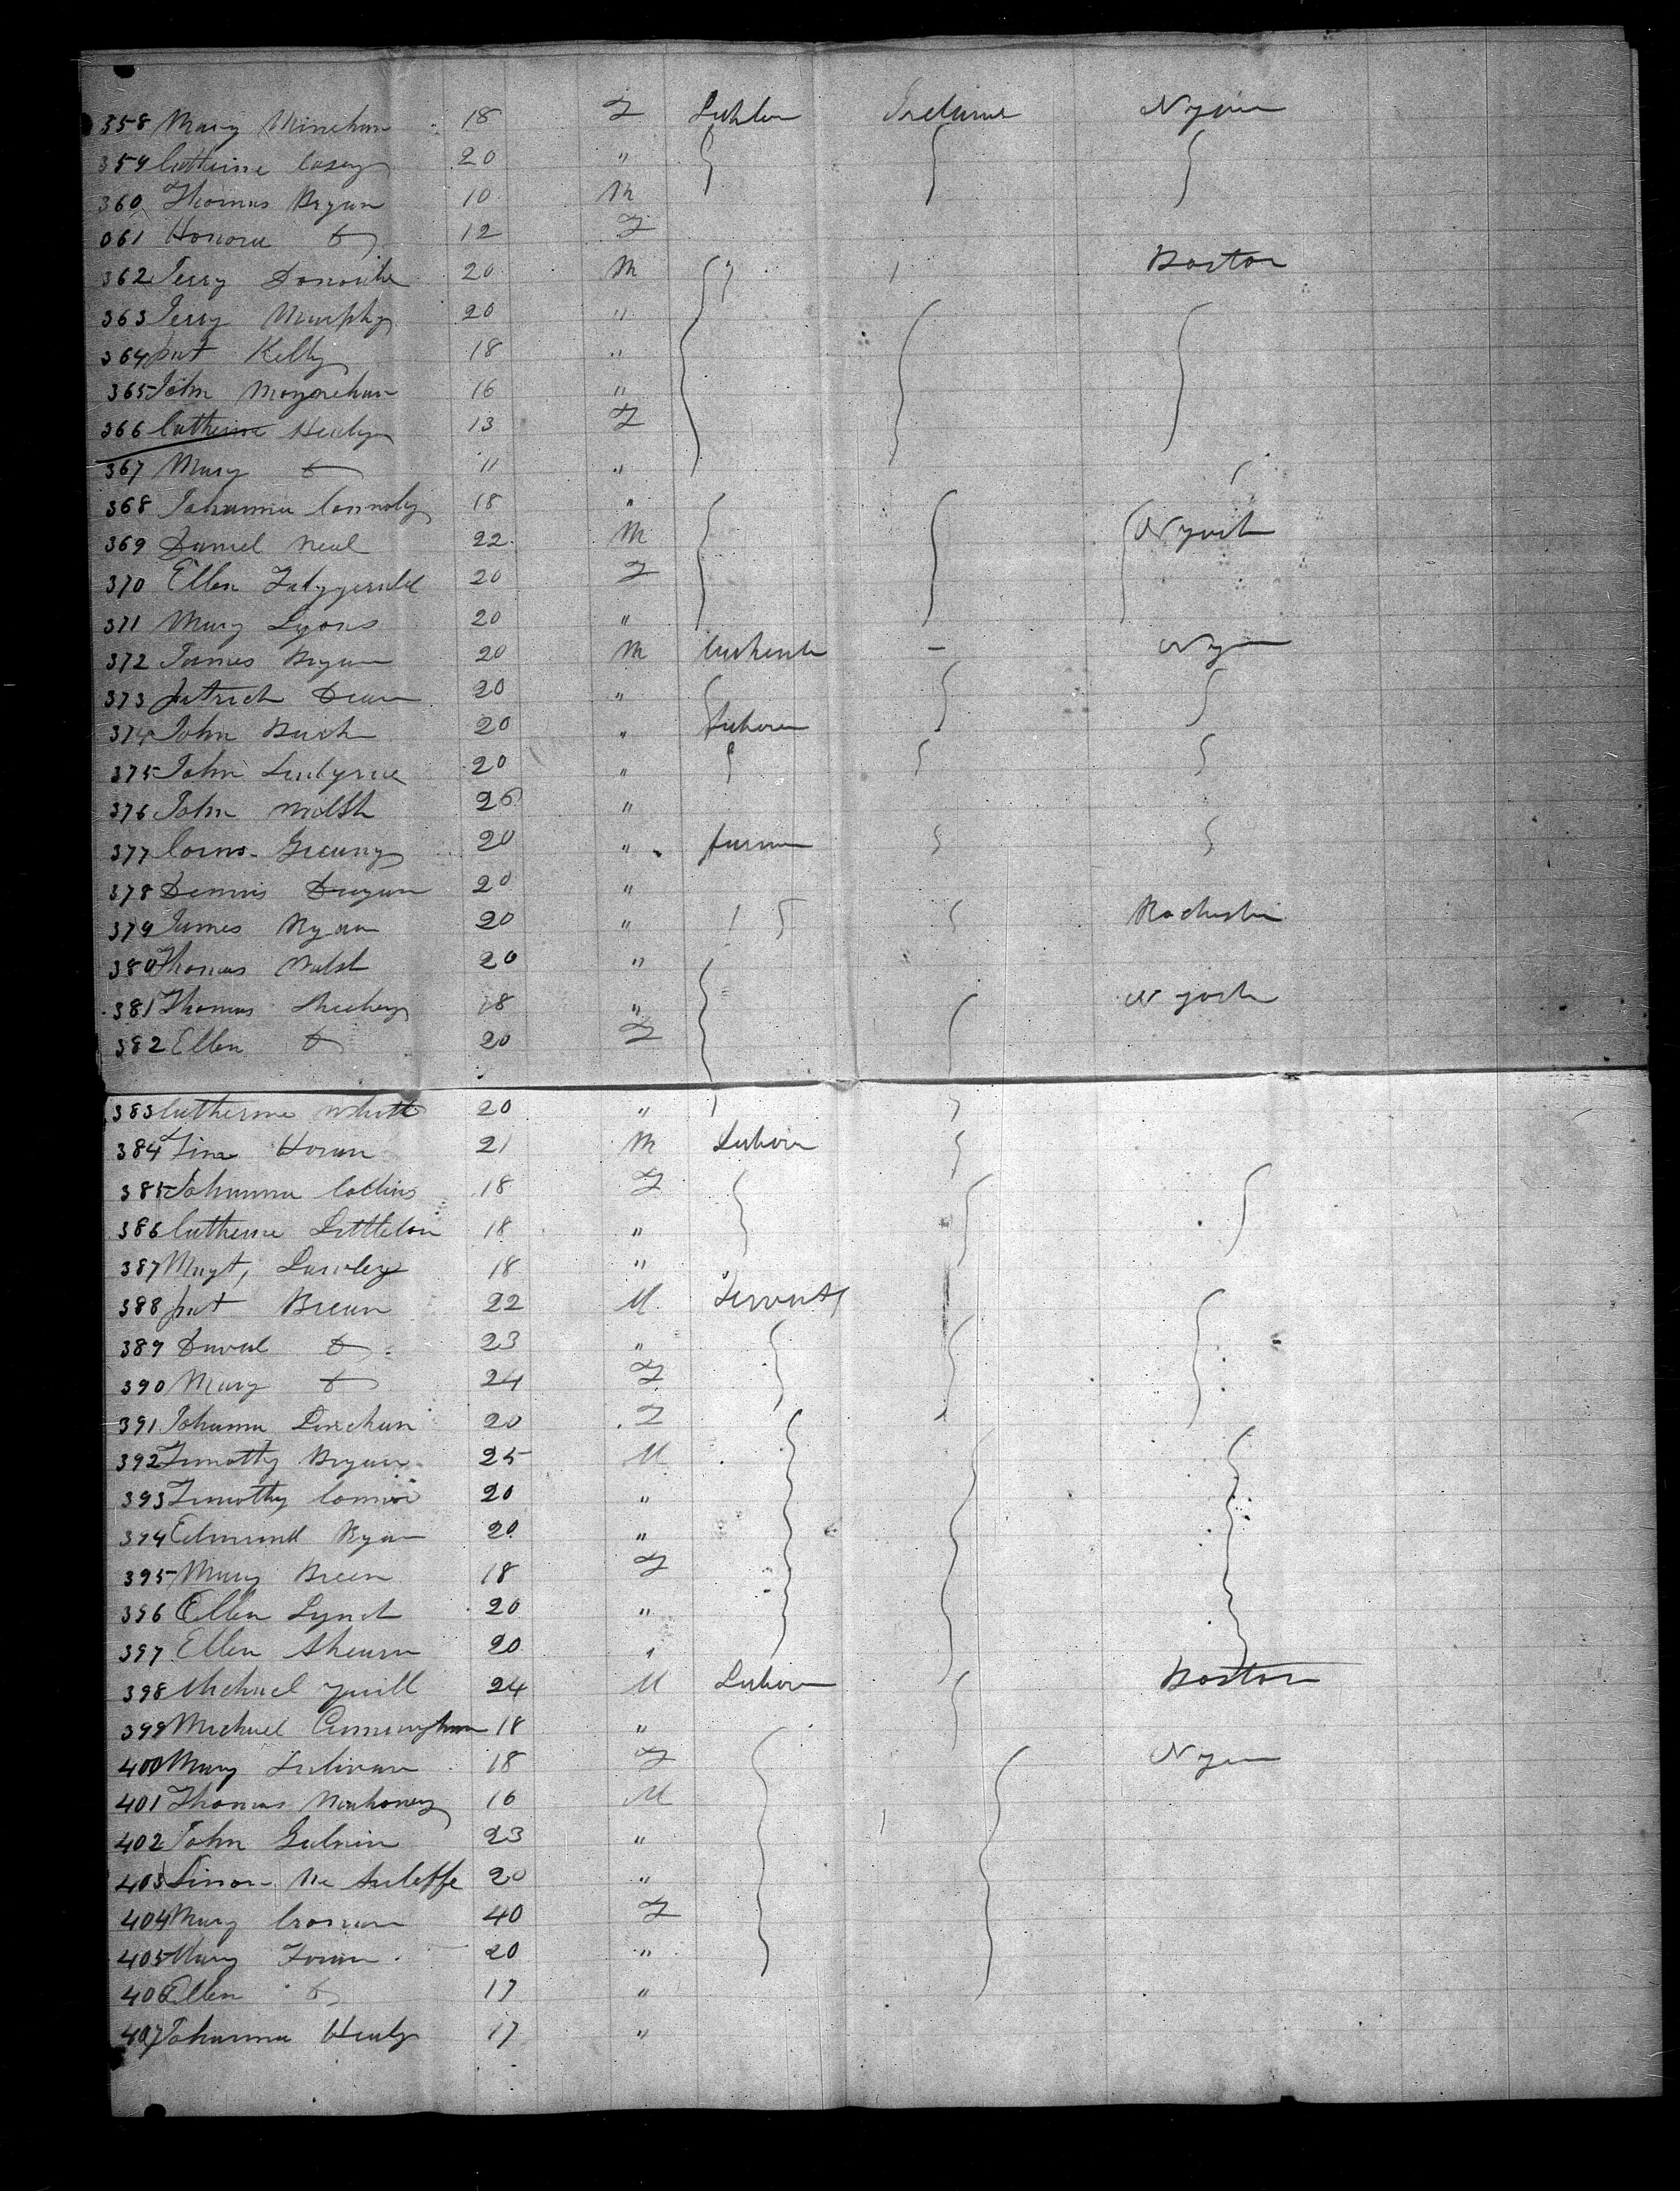 358 Mary Minehan 18 F Ireland N York
359 Catherine Casey 20 "
360 Thomas Bryan 10 M
361 Honora Do 12 F
362 Jerry Donoughe 20 M " Boston
363 Jerry Murphy 20 "
364 pat Kelly 18 "
365 John 16 "
366 Catherine Healy 13 F
367 Mary Do 11 "
368 Johanna Connoly 18 "
369 Daniel Neal 22 M N York
370 Ellen Fitzgerald 20 F
371 Mary Lyons 20 "
372 James Bryan 20 M - N York
373 patrick Dean 20 "
374 John 20 " Labourer
375 John 20 "
376 John Walsh 26 "
377 20 " farmer
378 Dennis Dugan 20 "
379 James Ryan 20 " Rochester
380 Thomas Walsh 20 "
381 Thomas Sheehy 18 " N York
382 Ellen Do 20 F
383 Catherine White 20 "
384 Horan 21 M Labour
385 Johanna Collins 18 F
386 Catherine Littleton 18 "
387 Magt, Lawley 18 "
388 pat Breen 22 M Servants
389 David Do 23 "
390 Mary Do 24 F
391 Johanna Linehan 20 F
392 Timothy Bryan 25 M
393 Timothy Connor 20 "
394 Edmund Ryan 20 "
395 Mary Breen 18 F
396 Ellen Lynch 20 "
397 Ellen Ahearn 20 "
398 Michael Quill 24 M Labour Boston
399 Michael Cunningham 18 "
400 Mary Sulivan 18 F N York
401 Thomas Mahoney 16 M
402 John Galvin 23 "
403 Simon Mc Auleffe 20 "
404 Mary Cronan 40 F
405 Mary Foran 20 "
406 Ellen Do 17 "
407 Johanna Healy 17 "